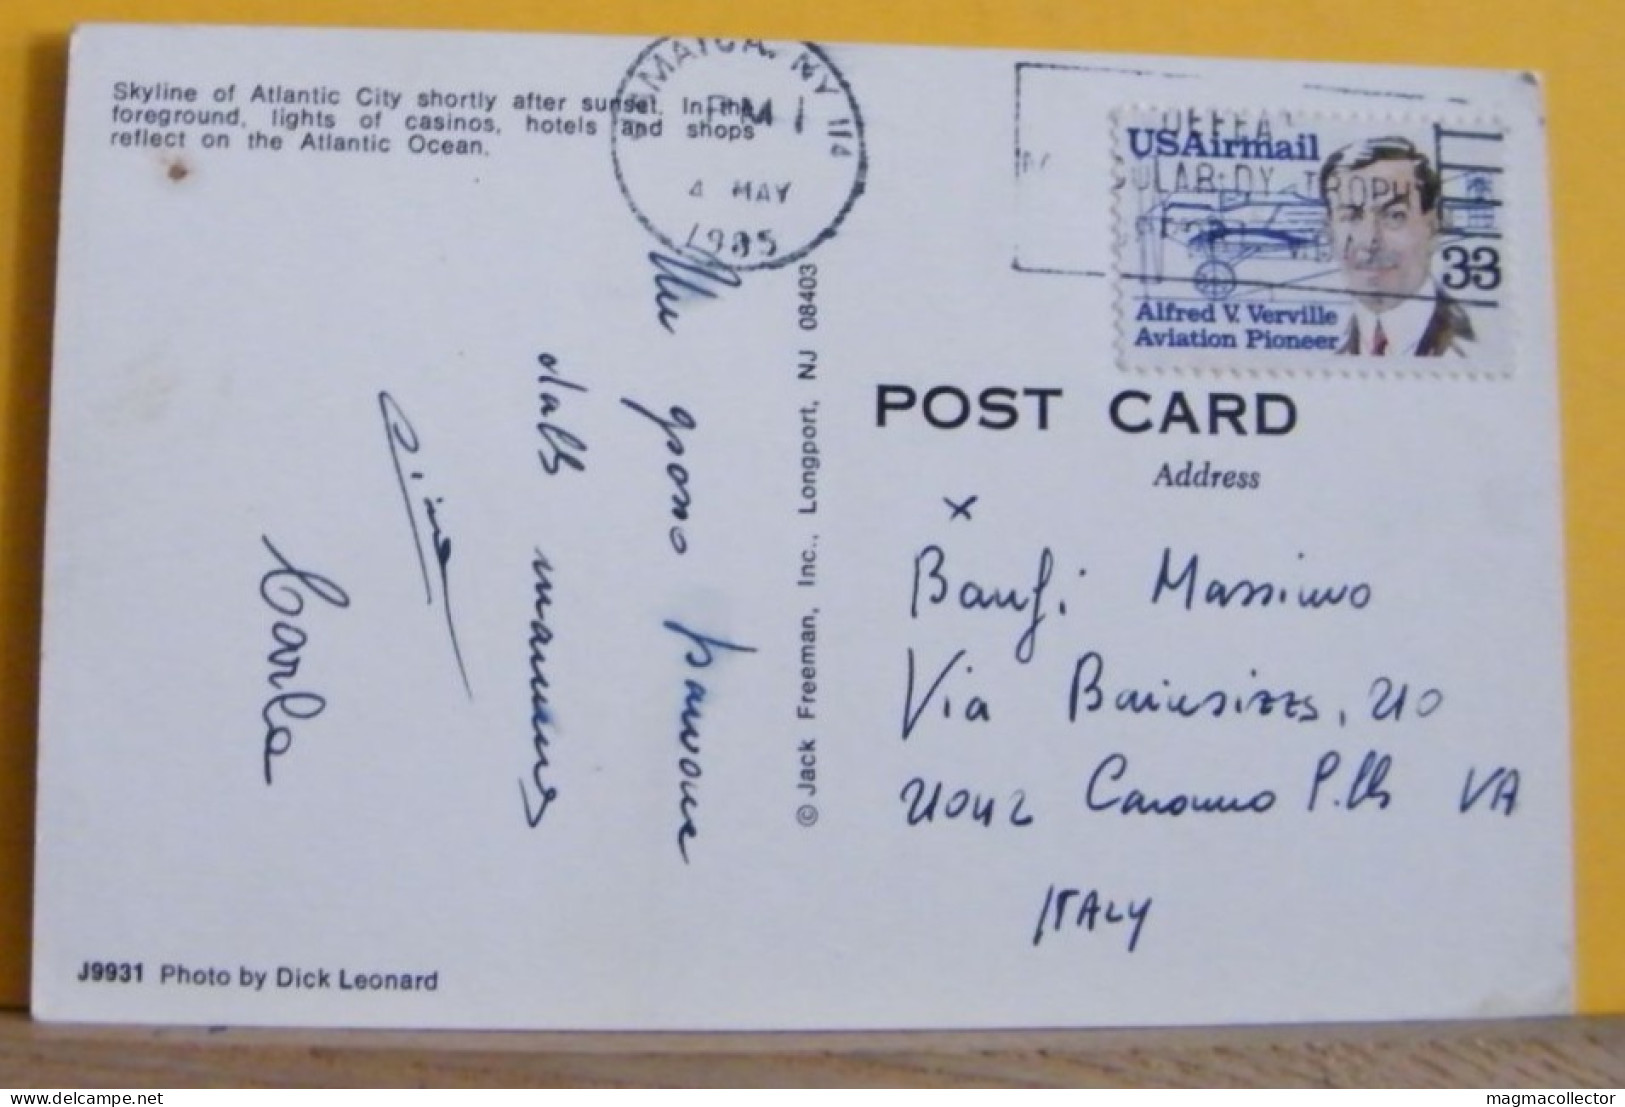 Skyline of Atlantic City shortly after sunset. In the
foreground, lights of casinos, hotels and shops
reflect on the Atlantic Ocean.
JAMAICA, NY 114
PM
4 MAY
1985
USAirmail
TROPHY
33
Alfred V. Verville
Aviation Pioneer
POST CARD
Address
x
Banfi Massimo
Via 210
21042 Caronno P.lla VA
ITALY
Un grosso
dalla
Carla
© Jack Freeman, Inc., Longport, NJ 08403
J9931 Photo by Dick Leonard
delcampe.net
magmacollector